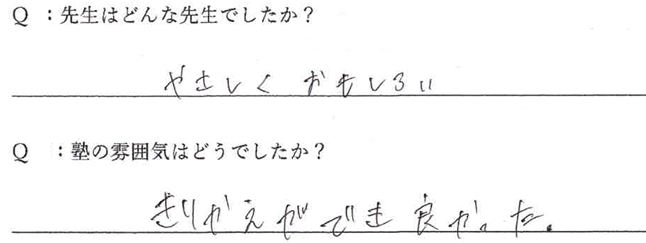 Q ：先生はどんな先生でしたか？
やさしく おもしろい
Q ：塾の雰囲気はどうでしたか？
きりかえができ良かった。